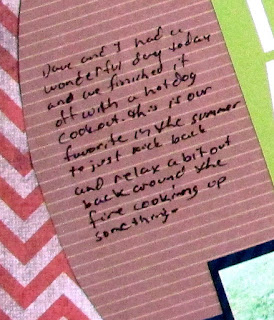 Dave and I had a
wonderful day today
and we finished it
off with a hotdog
cookout. This is our
favorite in the summer
to just kick back
and relax a bit out
back around the
fire cooking up
something.